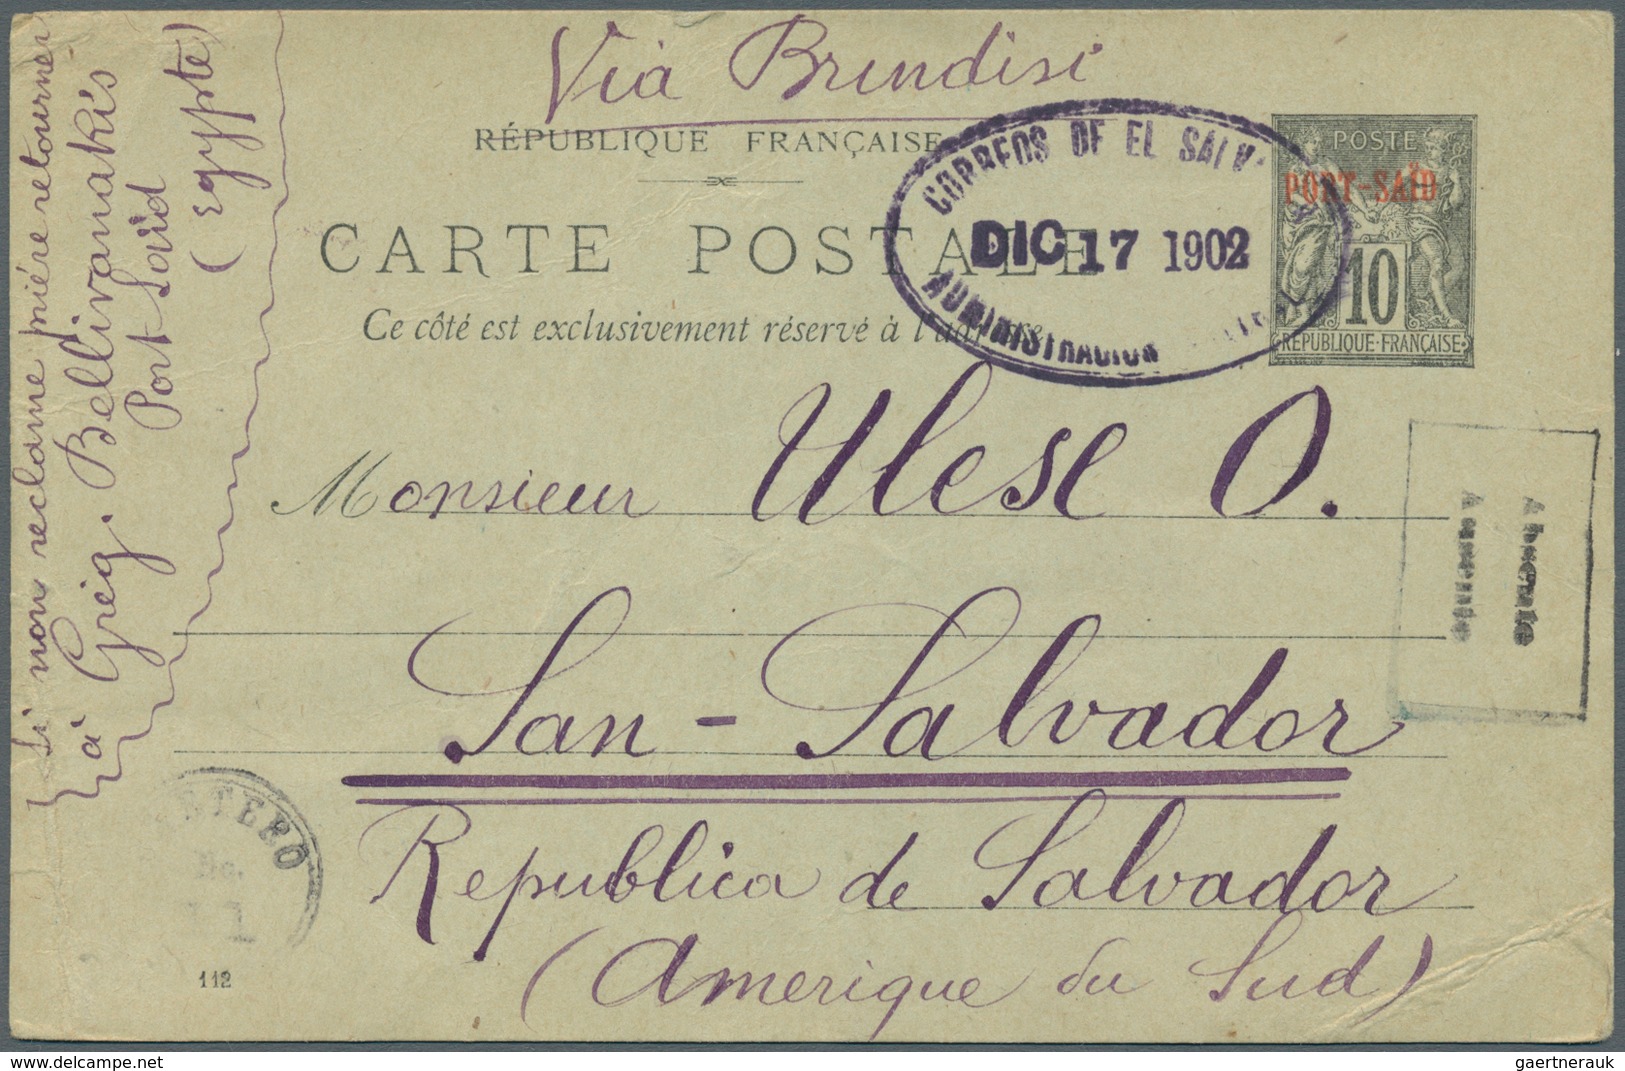 Via Brindisi
RÉPUBLIQUE FRANÇAISE
CARTE POSTALE
Ce côté est exclusivement réservé à
CORREOS DE EL
DIC 17 1902
ADMINISTRACION
POSTE
PORT-SAÏD
10
RÉPUBLIQUE·FRANÇAISE
Monsieur Ulese O.
San-Salvador
Republica de Salvador
(Amerique du Sud)
Si non reclame priére retourner
à Greg. Bellivanakis
Port-Saïd
(Egypte)
Absente
Ausente
112
delcampe.net
gaertnerauk